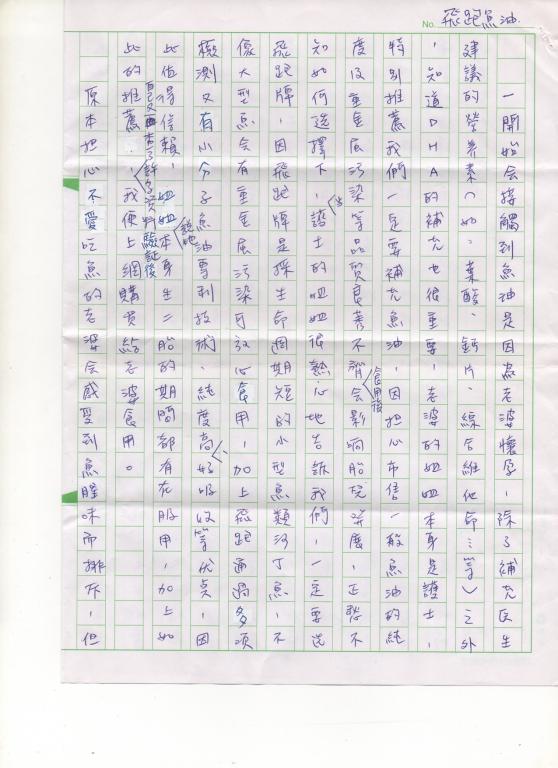 No. 飛跑魚油
一開始會接觸到魚油是因為老婆懷孕,除了補充醫生
建議的營養素(如:葉酸、鈣片、綜合維他命…等)之外
,知道DHA的補充也很重要,老婆的姐姐本身是護士,
特別推薦我們一定要補充魚油,因担心市售一般魚油的純
度及重金屬污染等品質良莠不齊會影响胎兒,正愁不
食用後
知如何選擇下,護士的姐姐很熱心地告訴我們,一定要選
飛跑牌,因飛跑牌是採生命週期短的小型魚類沙丁魚,不
像大型魚會有重金屬污染可放心食用,加上飛跑通過多項
檢測又有小分子魚油專利技術,純度高、好吸收等優點,因
此值得信賴,姐姐本身生二胎的期間都有在服用,加上如
此的推薦,我便上網購買給老婆食用。
自己又再查了許多資料驗証後
原本担心不愛吃魚的老婆會感受到魚腥味而排斥,但